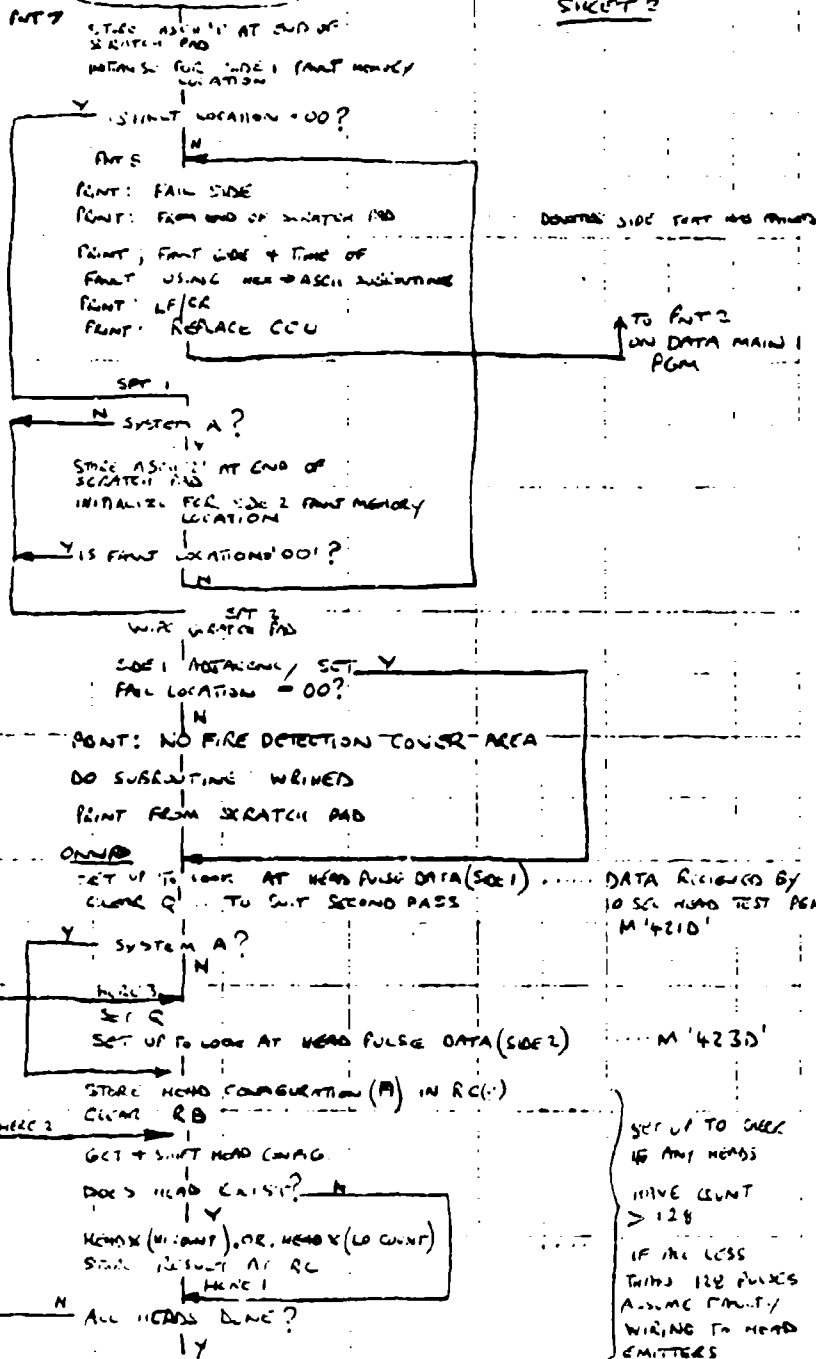 SHEET 2
PNT 7
STORE ASCII '1' AT END OF
SCRATCH PAD
INITIALISE FOR SIDE 1 FAULT MEMORY
LOCATION
Y IS FAULT LOCATION = 00?
N
PNT 5
PRINT: FAIL SIDE
PRINT: FROM END OF SCRATCH PAD
DENOTES SIDE THAT HAS FAILED
PRINT; FAULT CODE + TIME OF
FAULT USING HEX → ASCII SUBROUTINE
PRINT: LF/CR
PRINT: REPLACE CCU
TO PNT 2
ON DATA MAIN 1
PGM
SPT 1
N SYSTEM A?
Y
STORE ASCII '2' AT END OF
SCRATCH PAD
INITIALIZE FOR SIDE 2 FAULT MEMORY
LOCATION
Y IS FAULT LOCATION = '00'?
N
SPT 2
WIPE SCRATCH PAD
SIDE 1 ADJACENT / SET Y
FAIL LOCATION = 00?
N
PRINT: NO FIRE DETECTION COVER AREA
DO SUBROUTINE WRINED
PRINT FROM SCRATCH PAD
SET UP TO LOOK AT HEAD PULSE DATA (SIDE 1) ..... DATA RECIEVED BY
CLEAR Q ... TO SUIT SECOND PASS 10 SEC HEAD TEST PGM
M '421D'
Y SYSTEM A?
N
HERE 3
SET Q
SET UP TO LOOK AT HEAD PULSE DATA (SIDE 2) ..... M '423D'
STORE HEAD CONFIGURATION (A) IN RC
CLEAR RB
HERE 2
GET + SHIFT HEAD CONFIG
DOES HEAD EXIST? N
Y
HEAD X (HI COUNT), OR, HEAD X (LO COUNT)
STORE RESULT AT RC
HERE 1
N ALL HEADS DONE?
Y
SET UP TO CHECK
IF ANY HEADS
HAVE COUNT
> 128
IF ALL LESS
THAN 128 PULSES
ASSUME FAULTY
WIRING TO HEAD
EMITTERS